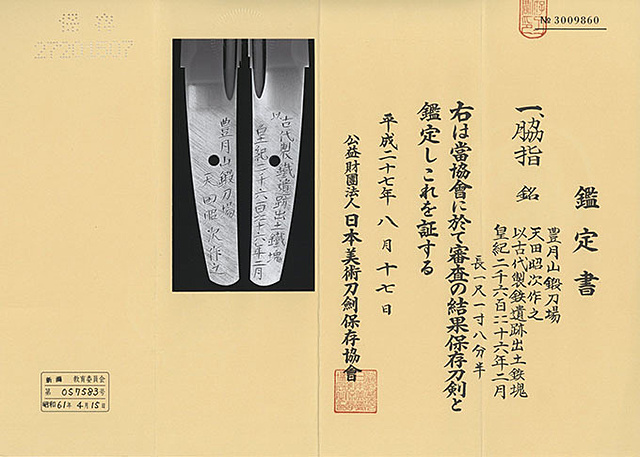 № 3009860
鑑定書
一、脇指 銘
豊月山鍛刀場
天田昭次作之
以古代製鉄遺跡出土鉄塊
皇紀二千六百二十六年二月
長一尺一寸八分半
右は當協會に於て審査の結果保存刀剣と
鑑定しこれを証する
平成二十七年八月十七日
公益財團法人日本美術刀劍保存協會
以古代製鐵遺跡出土鐵塊
皇紀二千六百二十六年二月
豊月山鍛刀場
天田昭次作之
新潟 教育委員会
第 057583 号
昭和61年 4月15日